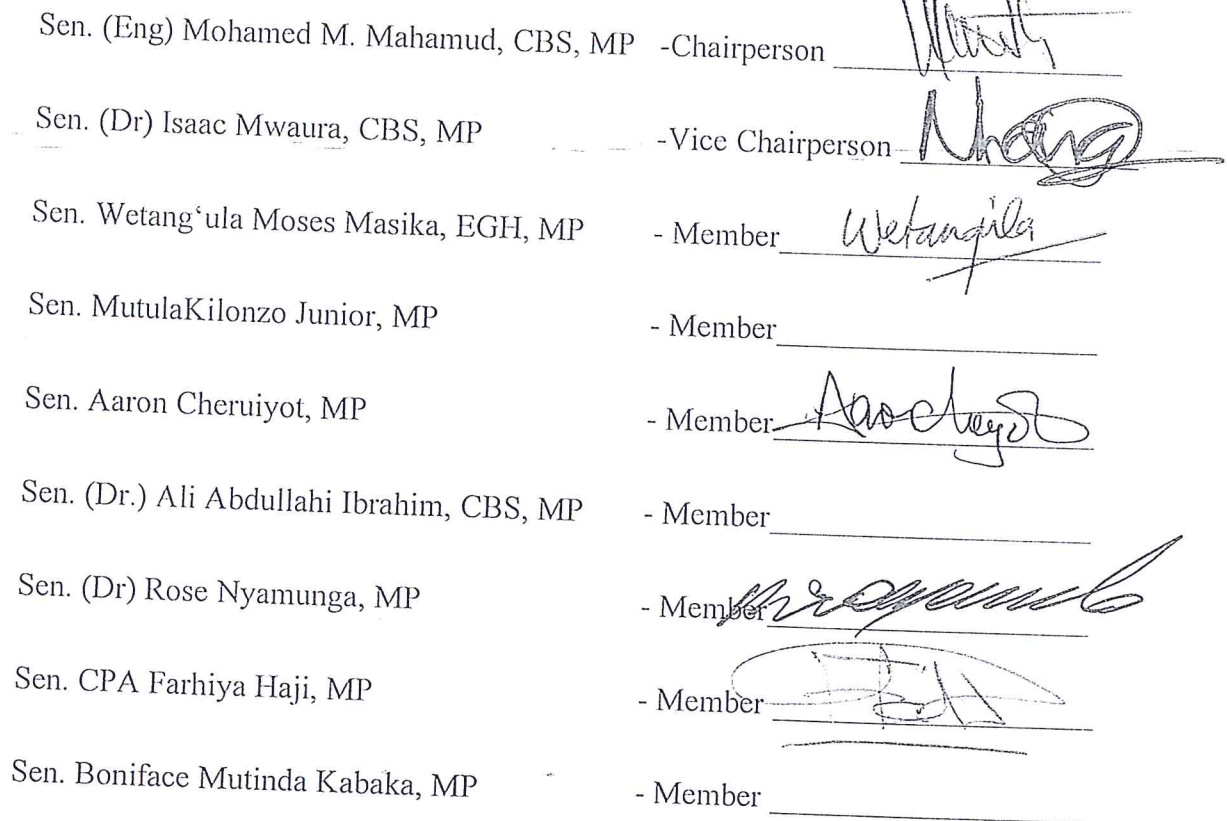 Sen. (Eng) Mohamed M. Mahamud, CBS, MP -Chairperson
Sen. (Dr) Isaac Mwaura, CBS, MP -Vice Chairperson
Sen. Wetang‘ula Moses Masika, EGH, MP - Member Wetangula
Sen. MutulaKilonzo Junior, MP - Member
Sen. Aaron Cheruiyot, MP - Member
Sen. (Dr.) Ali Abdullahi Ibrahim, CBS, MP - Member
Sen. (Dr) Rose Nyamunga, MP - Member
Sen. CPA Farhiya Haji, MP - Member
Sen. Boniface Mutinda Kabaka, MP - Member